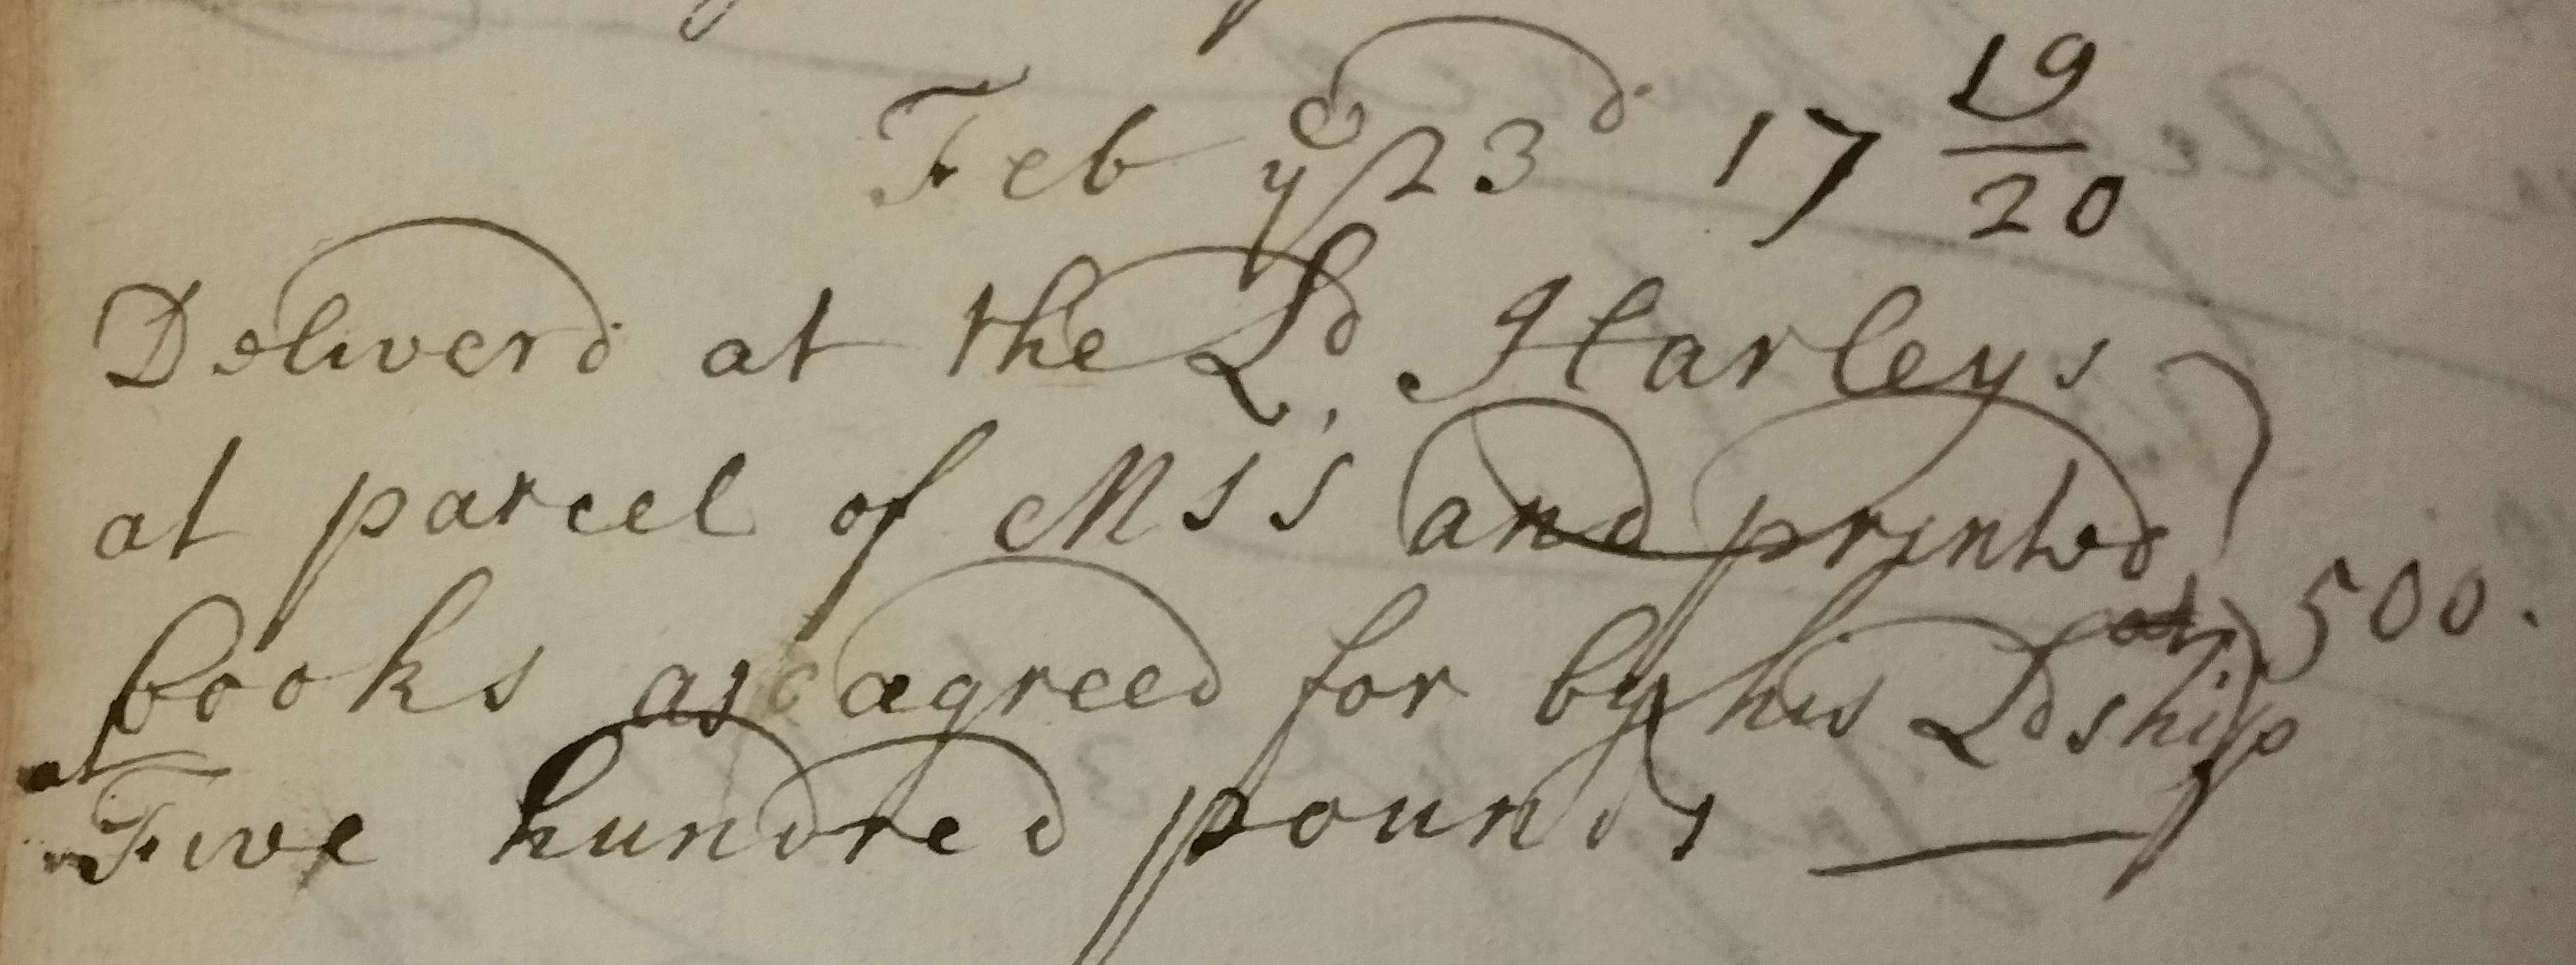 Feb ye 23d 17 19/20
Deliverd at the Ld Harleys
at parcel of MS's and printed
books as agreed for by his Ldship 500.
at Five hundred pounds